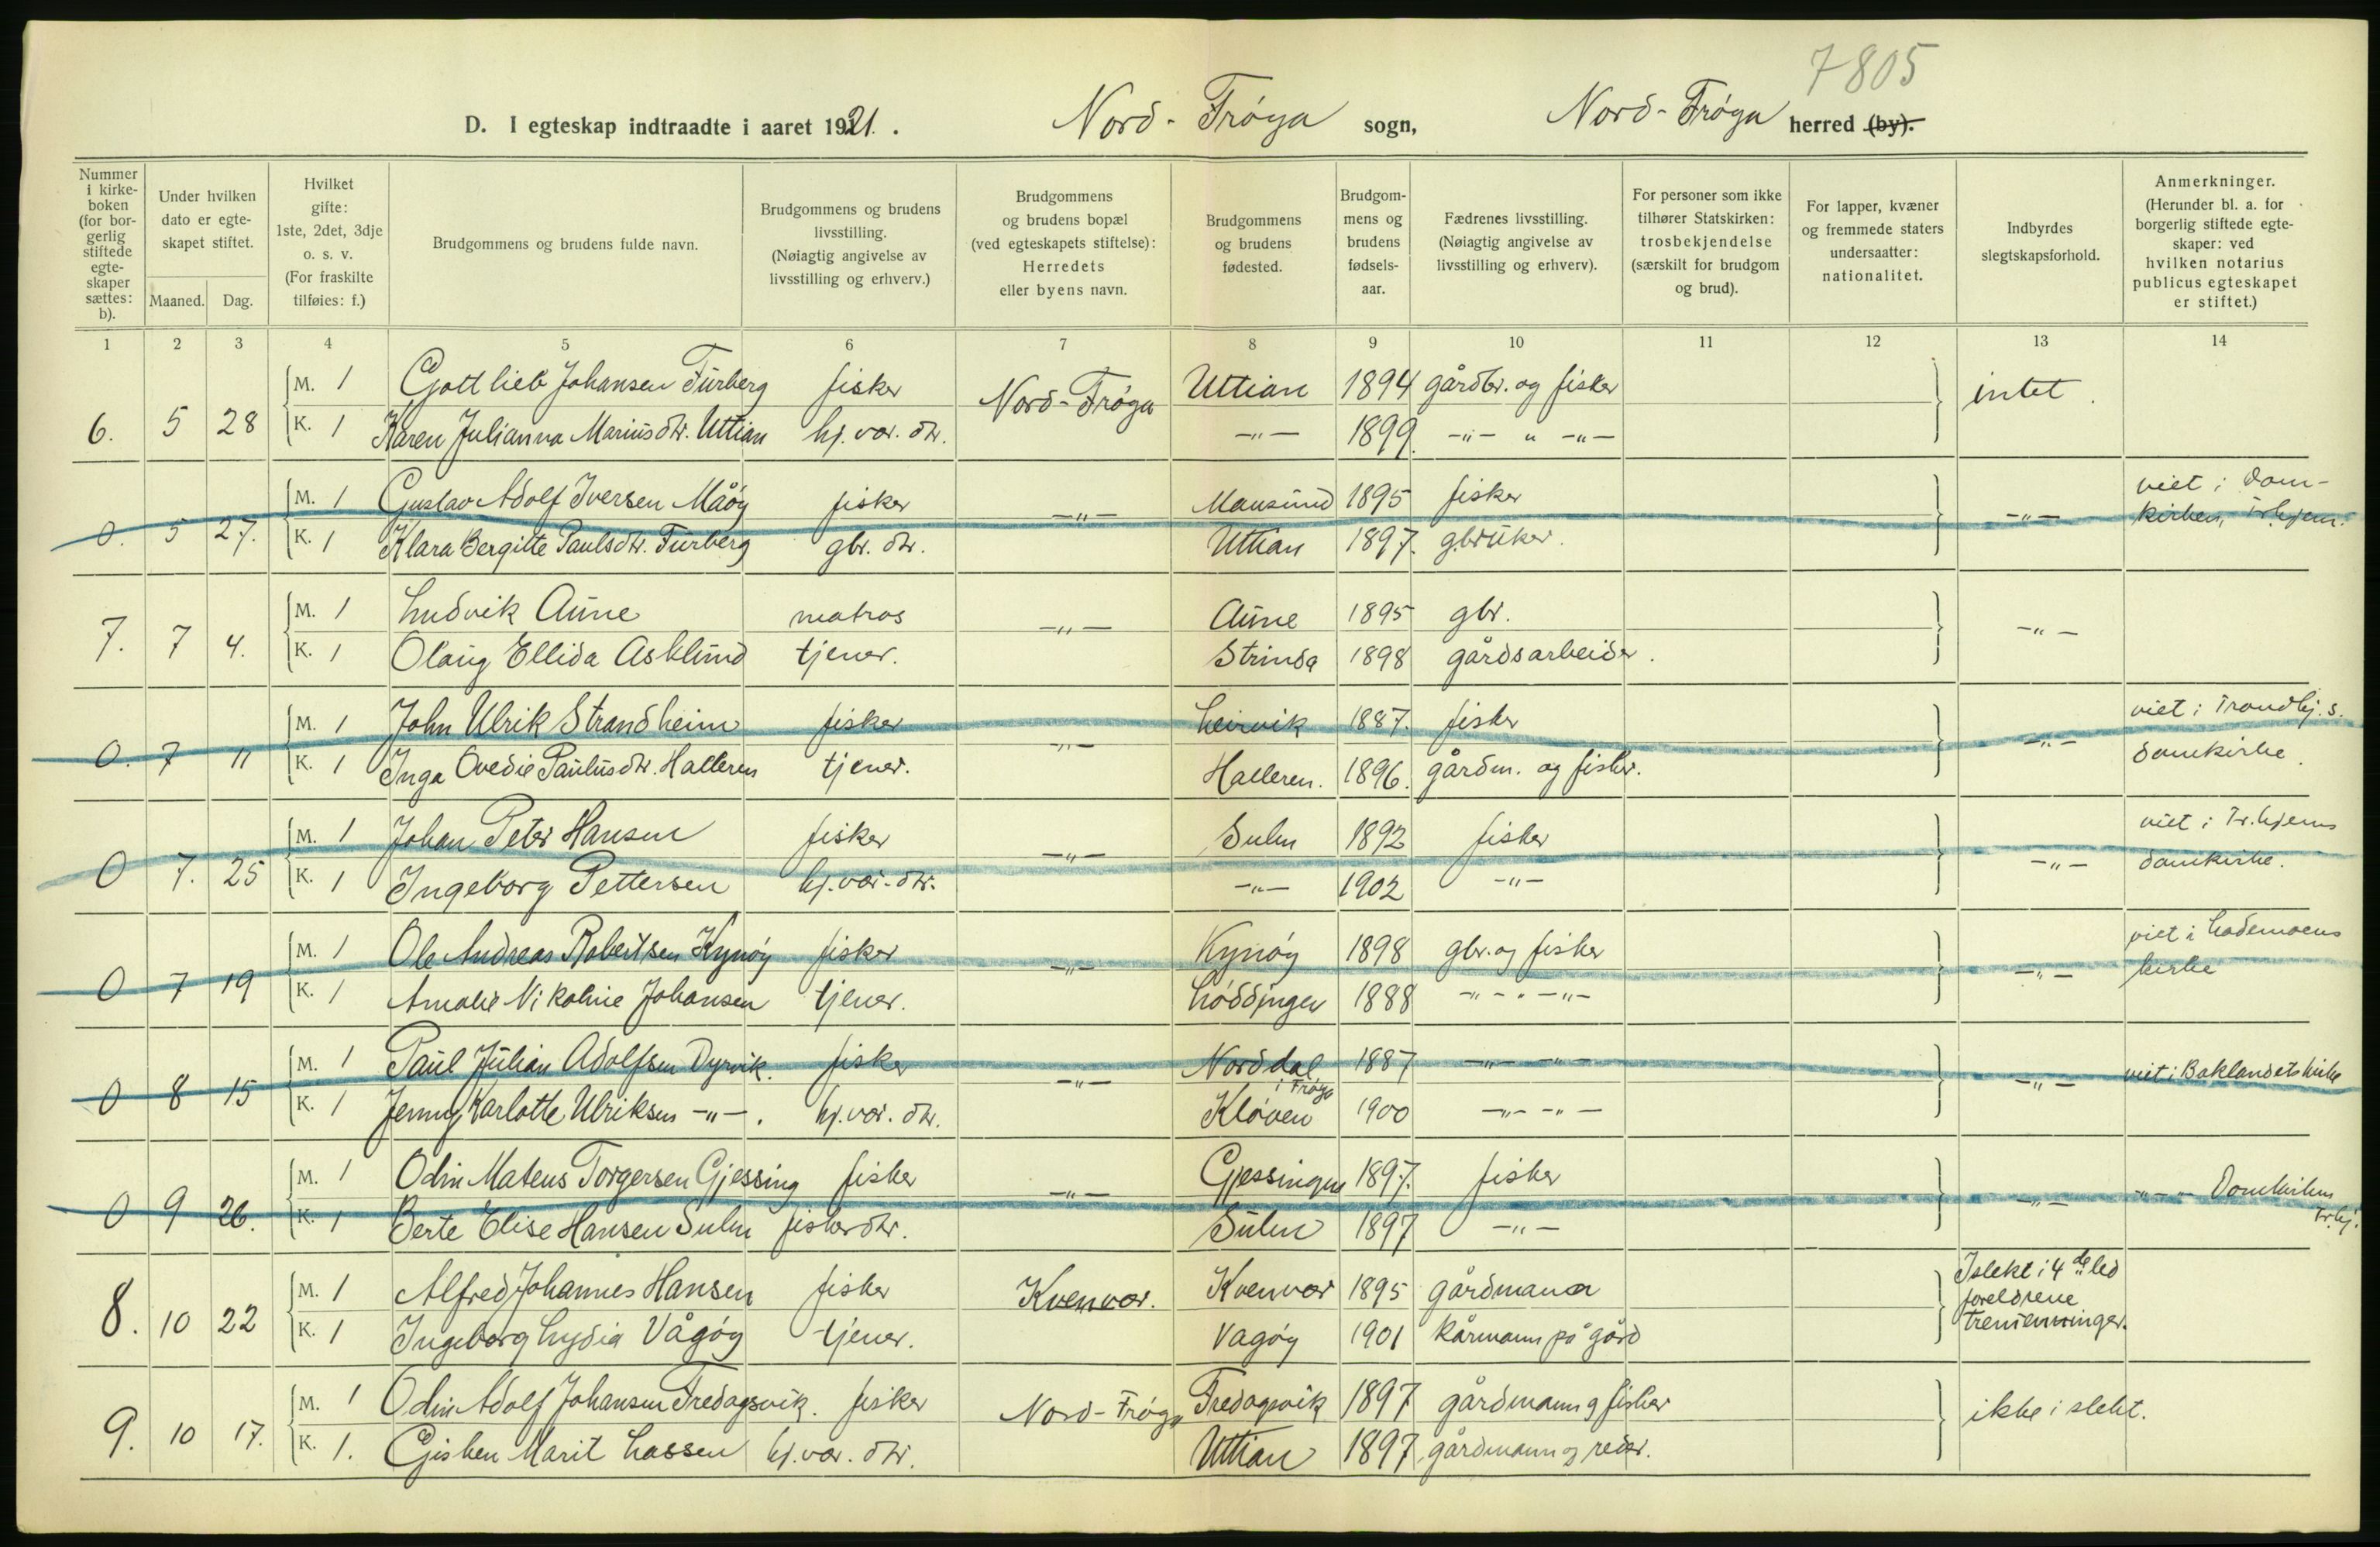 7805
D. I egteskap indtraadte i aaret 1921. Nord-Frøya sogn, Nord-Frøya herred (by).
Nummer i kirkeboken (for borgerlig stiftede egteskaper sættes: b).
Under hvilken dato er egteskapet stiftet.
Maaned. Dag.
Hvilket gifte: 1ste, 2det, 3dje o. s. v. (For fraskilte tilføies: f.)
Brudgommens og brudens fulde navn.
Brudgommens og brudens livsstilling. (Nøiagtig angivelse av livsstilling og erhverv.)
Brudgommens og brudens bopæl (ved egteskapets stiftelse): Herredets eller byens navn.
Brudgommens og brudens fødested.
Brudgommens og brudens fødselsaar.
Fædrenes livsstilling. (Nøiagtig angivelse av livsstilling og erhverv).
For personer som ikke tilhører Statskirken: trosbekjendelse (særskilt for brudgom og brud).
For lapper, kvæner og fremmede staters undersaatter: nationalitet.
Indbyrdes slegtskapsforhold.
Anmerkninger. (Herunder bl. a. for borgerlig stiftede egteskaper: ved hvilken notarius publicus egteskapet er stiftet.)
1 2 3 4 5 6 7 8 9 10 11 12 13 14
M. 1 Gottlieb Johansen Fürberg fisker Nord-Frøya Uttian 1894 gårdbr. og fisker intet.
6. 5 28 K. 1 Karen Julianna Mariusdtr. Uttian hj. vær. dtr. -"- 1899. -"- " -"-
M. 1 Gustav Adolf Iversen Måøy fisker -"- Mausund 1895 fisker -"- viet i Dom-
0. 5 27. K. 1 Klara Bergitte Paulsdtr. Fürberg gbr. dtr. Uttian 1897. gbruker. kirken, Tr.hjem.
M. 1 Ludvik Aune matros -"- Aune 1895 gbr. -"-
7. 7 4. K. 1 Olaug Ellida Asklund tjener. Strinda 1898 gårdsarbeider.
M. 1 John Ulrik Strandheim fisker -"- Leirvik 1887. fisker -"- viet i Trondhj.s.
0. 7 11 K. 1 Inga Ovedie Paulusdtr. Halleren tjener. Halleren. 1896. gårdm. og fisker. domkirke.
M. 1 Johan Peter Hansen fisker -"- Sulen 1892 fisker -"- viet i Tr.hjems
0 7. 25 K. 1 Ingeborg Pettersen hj. vær. dtr. -"- 1902 -"- domkirke.
M. 1 Ole Andreas Robertsen Kynøy fisker -"- Kynøy 1898 gbr. og fisker -"- viet i Lademoens
0 7 19 K. 1 Amalie Nikoline Johansen tjener. Løddingen 1888 -"- " -"- kirke
M. 1 Paul Julian Adolfsen Dyrvik. fisker -"- Norddal i Frøya 1887 -"- -"- -"- viet i Baklandets kirke
0 8 15 K. 1 Jenny Karlotte Ulriksen -"-. hj. vær. dtr. Kløven 1900 -"- -"-
M. 1 Odin Mateus Torgersen Gjessing fisker -"- Gjessingen 1897. fisker -"- -"- Domkirken
0 9 26. K. 1 Berte Elise Hansen Sulen fisker dtr. Sulen 1897 -"- Tr.hj.
M. 1 Alfred Johannes Hansen fisker Kvenvær. Kvenvær 1895 gårdmann I slekt i 4de led
8. 10 22 K. 1 Ingeborg Lydia Vågøy tjener. Vagøy 1901 kårmann på gård foreldrene tremenninger.
M. 1 Odin Adolf Johansen Fredagsvik. fisker Nord-Frøya Fredagsvik 1897 gårdmann og fisker ikke i slekt.
9. 10 17. K. 1. Gisken Marit Lassen hj. vær. dtr. Uttian 1897. gårdmann og reder.